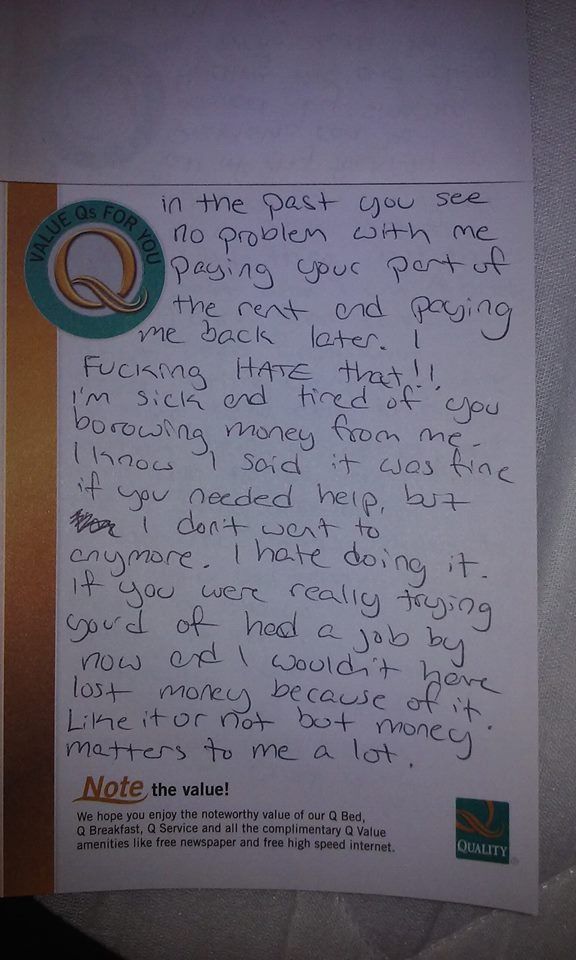 VALUE Qs FOR YOU
Q
in the past you see
no problem with me
paying your part of
the rent and paying
me back later. I
FUCKING HATE that!!
I'm sick and tired of you
borowing money from me.
I know I said it was fine
if you needed help, but
I don't want to
anymore. I hate doing it.
If you were really trying
you'd of had a job by
now and I wouldn't have
lost money because of it.
Like it or not but money
matters to me a lot.
Note the value!
We hope you enjoy the noteworthy value of our Q Bed,
Q Breakfast, Q Service and all the complimentary Q Value
amenities like free newspaper and free high speed internet.
QUALITY